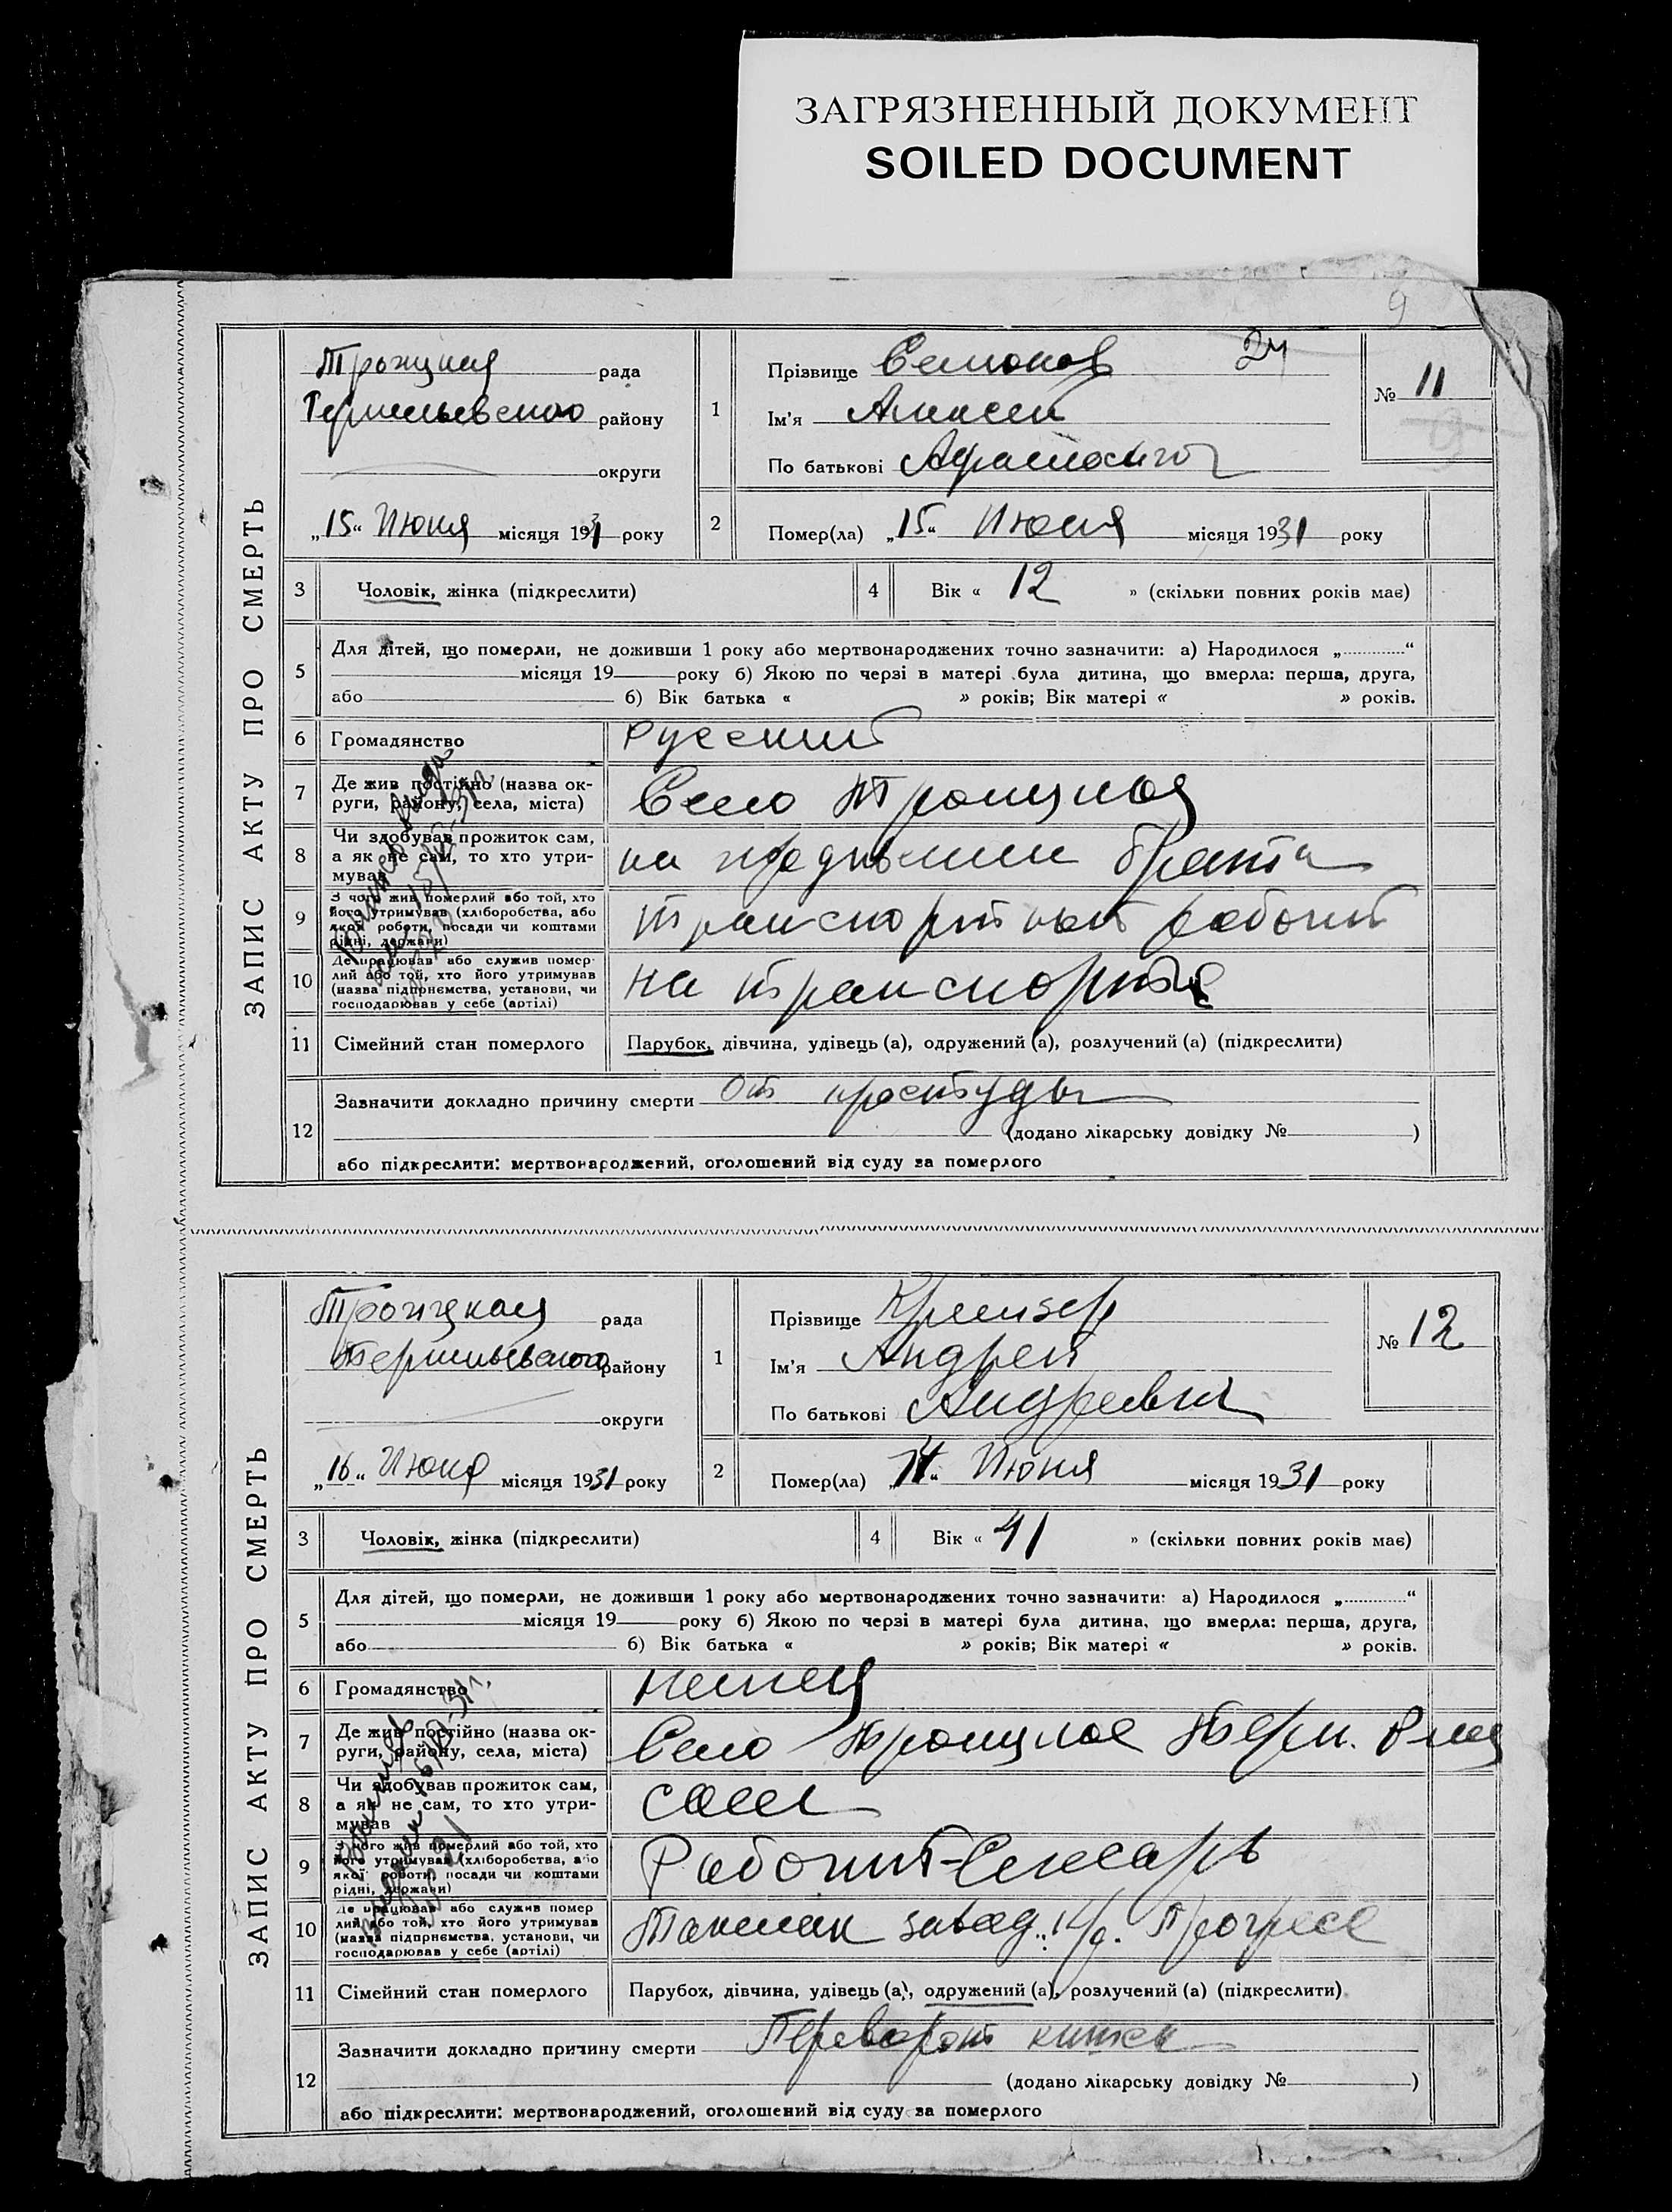 ЗАГРЯЗНЕННЫЙ ДОКУМЕНТ
SOILED DOCUMENT
9
ЗАПИС АКТУ ПРО СМЕРТЬ
Троицкая рада
района району
округи
„15“ Июня місяця 1931 року
1
Прізвище 24
Ім'я Алексей
По батькові
№ 11
2
Помер(ла) „15“ Июня місяця 1931 року
3
Чоловік, жінка (підкреслити)
4
Вік « 12 » (скільки повних років має)
5
Для дітей, що померли, не доживши 1 року або мертвонароджених точно зазначити: а) Народилося „ “
місяця 19 року б) Якою по черзі в матері була дитина, що вмерла: перша, друга,
або б) Вік батька « » років; Вік матері « » років.
6
Громадянство
Русский
7
Де жив постійно (назва ок-
руги, району, села, міста)
Село Троицкое
8
Чи здобував прожиток сам,
а як не сам, то хто утри-
мував
на иждивении брата
9
З чого жив померлий або той, хто
його утримував (хліборобства, або
якої роботи, посади чи коштами
рідні, держави)
транспортный рабочий
10
Де працював або служив помер-
лий або той, хто його утримував
(назва підприємства, установи, чи
господарював у себе (артілі)
на транспорте
11
Сімейний стан померлого
Парубок, дівчина, удівець (а), одружений (а), розлучений (а) (підкреслити)
12
Зазначити докладно причину смерти от простуды
(додано лікарську довідку № )
або підкреслити: мертвонароджений, оголошений від суду за померлого
ЗАПИС АКТУ ПРО СМЕРТЬ
Троицкая рада
району
округи
„16“ Июня місяця 1931 року
1
Прізвище
Ім'я Андрей
По батькові Андреевич
№ 12
2
Помер(ла) „14“ Июня місяця 1931 року
3
Чоловік, жінка (підкреслити)
4
Вік « 41 » (скільки повних років має)
5
Для дітей, що померли, не доживши 1 року або мертвонароджених точно зазначити: а) Народилося „ “
місяця 19 року б) Якою по черзі в матері була дитина, що вмерла: перша, друга,
або б) Вік батька « » років; Вік матері « » років.
6
Громадянство
немец
7
Де жив постійно (назва ок-
руги, району, села, міста)
Село Троицкое
8
Чи здобував прожиток сам,
а як не сам, то хто утри-
мував
сам
9
З чого жив померлий або той, хто
його утримував (хліборобства, або
якої роботи, посади чи коштами
рідні, держави)
Рабочий-Слесарь
10
Де працював або служив помер
лий або той, хто його утримував
(назва підприємства, установи, чи
господарював у себе (артілі)
Токмак завод Прогресс
11
Сімейний стан померлого
Парубох, дівчина, удівець (а), одружений (а), розлучений (а) (підкреслити)
12
Зазначити докладно причину смерти Переворот кишек
(додано лікарську довідку № )
або підкреслити: мертвонароджений, оголошений від суду за померлого